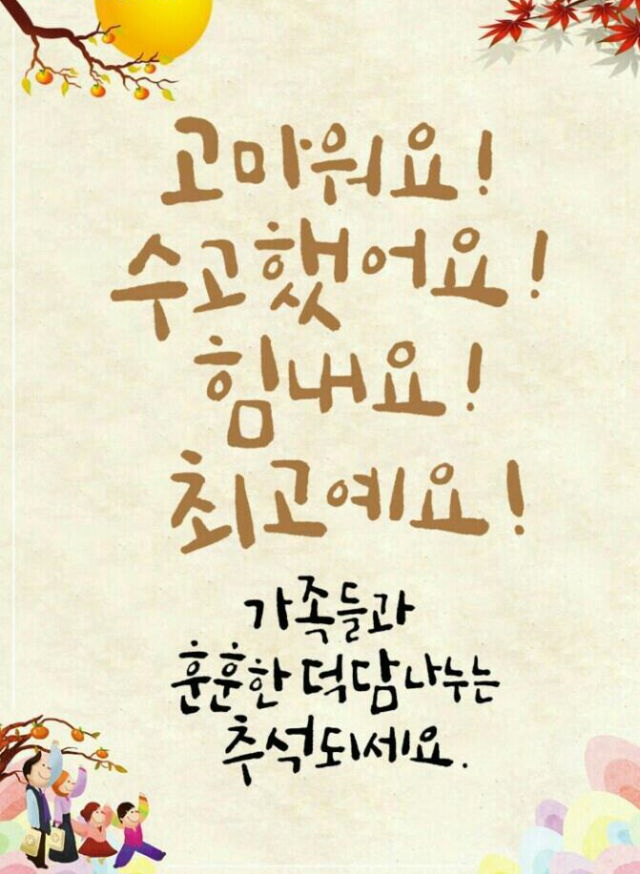 고마워요!
수고했어요!
힘내요!
최고예요!
가족들과
훈훈한 덕담 나누는
추석되세요.